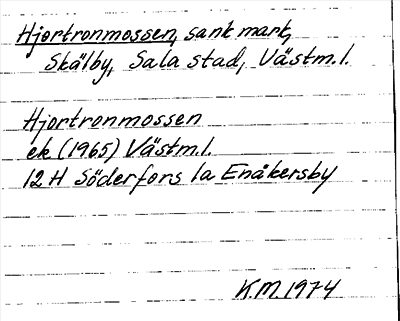 Hjortronmossen, sank mark,
Skälby, Sala stad, Västm.l.
Hjortronmossen
ek (1965) Västm.l.
12 H Söderfors 1a Enåkersby
K.M. 1974